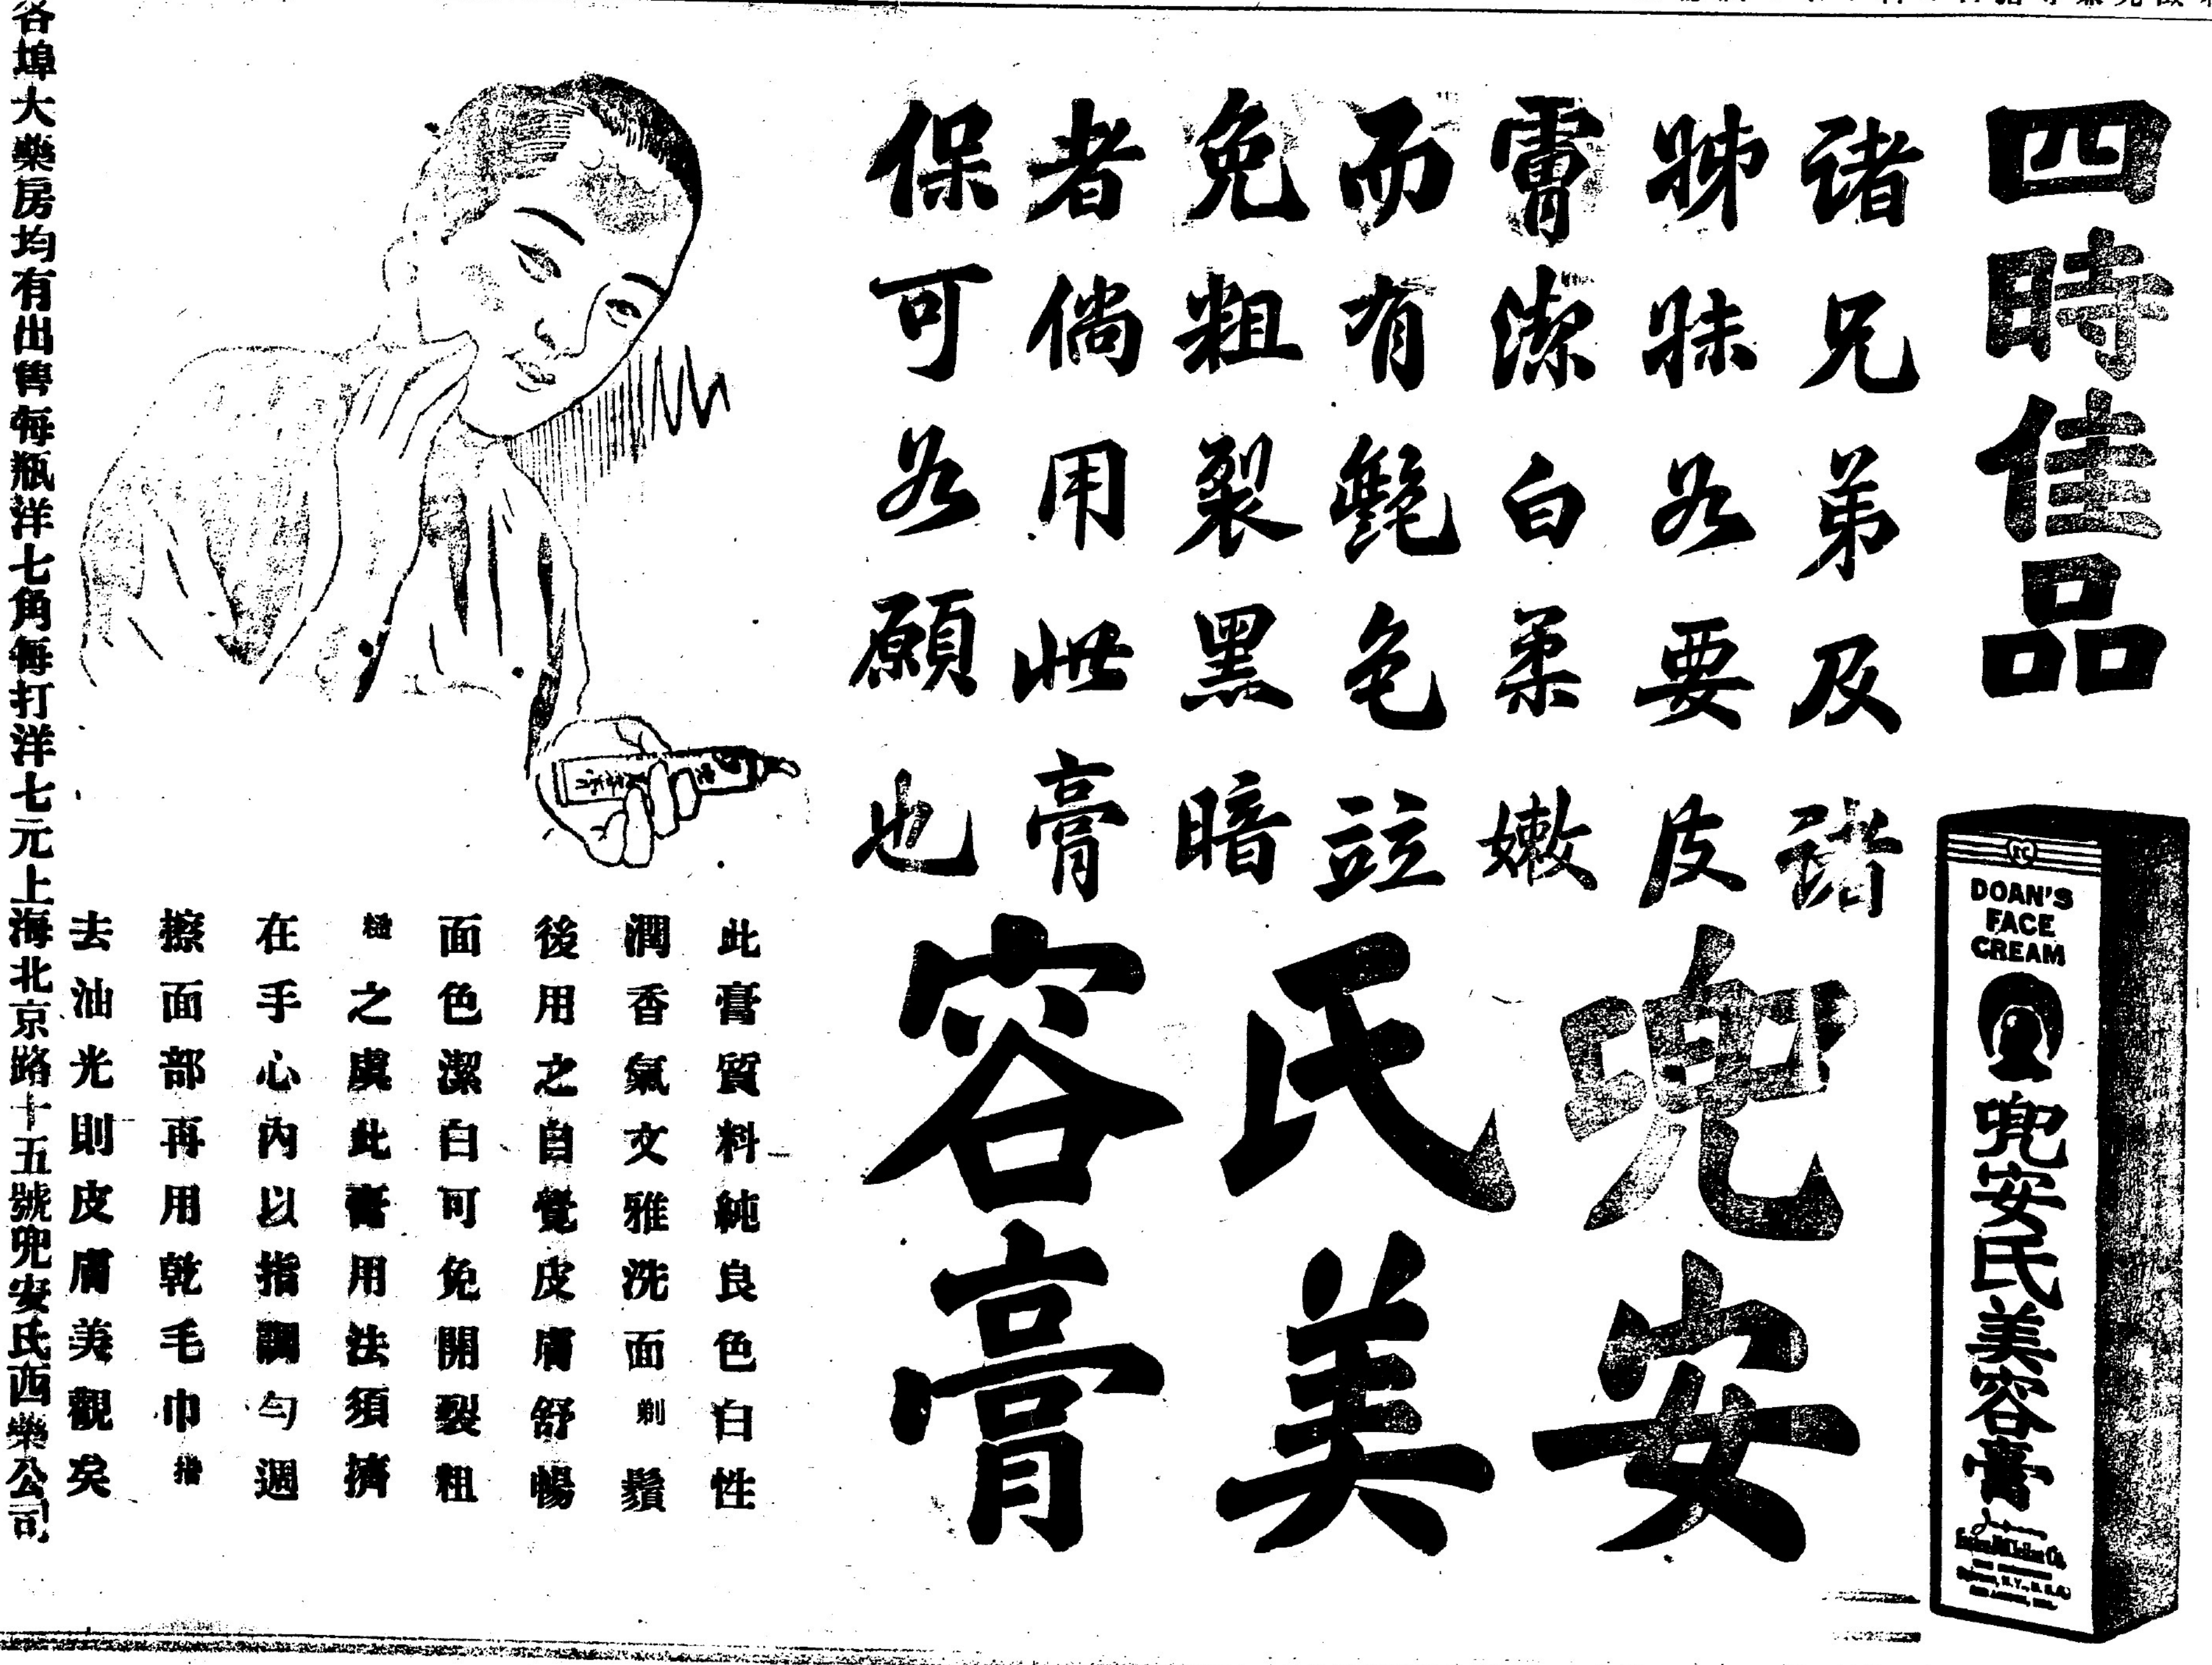 四時佳品
諸兄弟及諸
姊妹如要皮
膚潔白柔嫩
而有艷色並
免粗裂黑暗
者倘用此膏
保可如願也
兜安
氏美
容膏
DOAN'S
FACE
CREAM
兜安氏美容膏
此膏質料純良色白性
潤香氣文雅洗面剃鬚
後用之自覺皮膚舒暢
面色潔白可免開裂粗
糙之虞此膏用法須擠
在手心內以指調勻週
擦面部再用乾毛巾揩
去油光則皮膚美觀矣
各埠大藥房均有出售每瓶洋七角每打洋七元上海北京路十五號兜安氏西藥公司